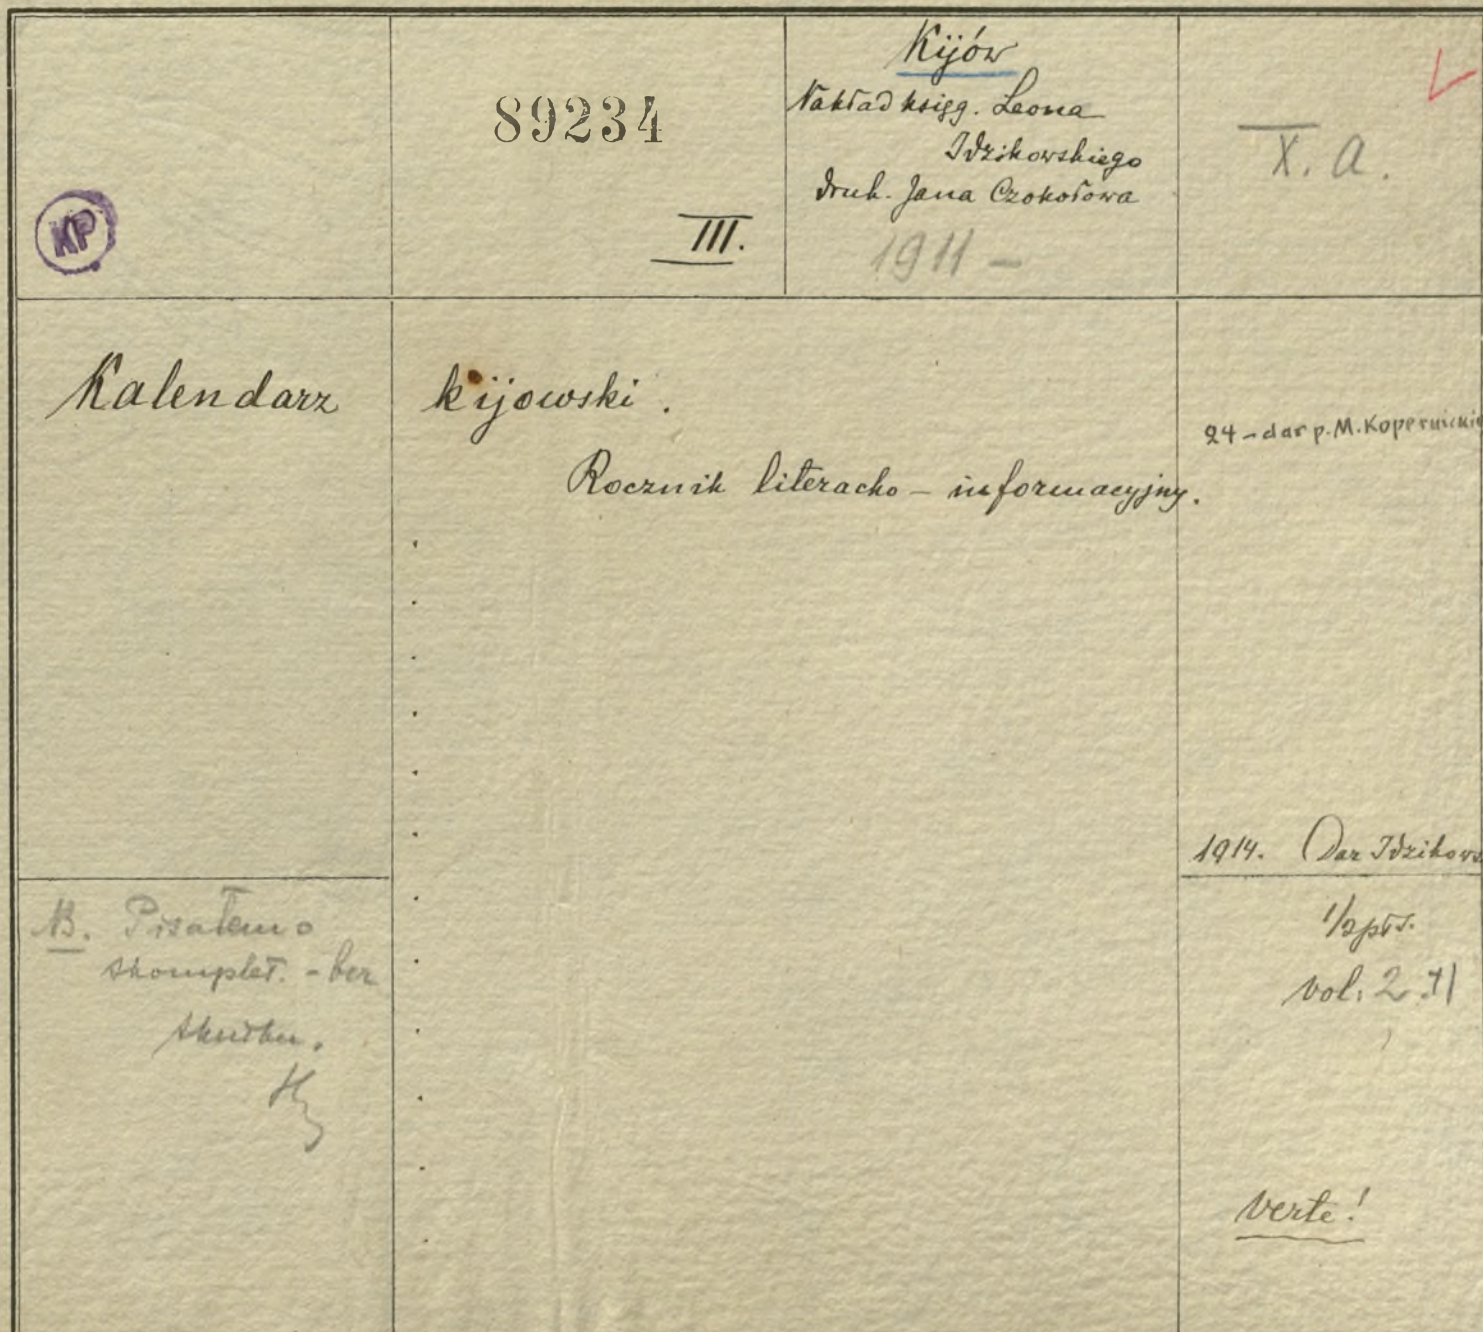 89234
III.
KP
Kijów
Nakład księg. Leona
Idzikowskiego
druk. Jana Czokołowa
1911 –
X. a.
Kalendarz kijowski.
Rocznik literacko – informacyjny.
24 – dar p. M. Kopernicki
1914. Dar Idzikows
NB. Pisałem o
skomplet. – bez
skutku.
1/2 płs.
vol. 2
verte!